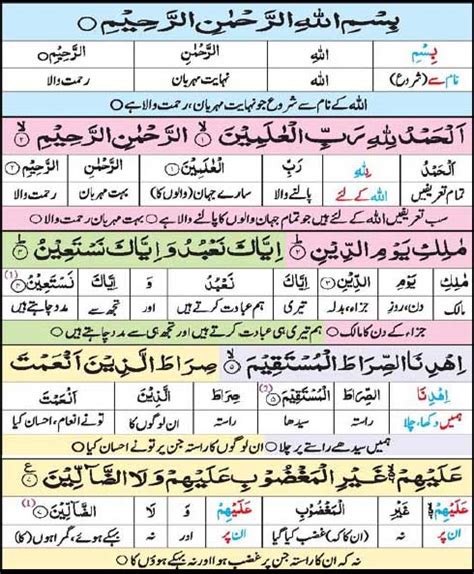 بِسْمِ اللهِ الرَّحْمٰنِ الرَّحِيْمِ ○
بِسْمِ اللهِ الرَّحْمٰنِ الرَّحِيْمِ
نام سے (شروع) اللہ نہایت مہربان، رحمت والا
اللہ کے نام سے شروع جو نہایت مہربان، رحمت والا ہے ○
اَلْحَمْدُ لِلهِ رَبِّ الْعٰلَمِيْنَ ۙ﴿۱﴾ الرَّحْمٰنِ الرَّحِيْمِ ۙ﴿۲﴾
اَلْحَمْدُ لِلهِ رَبِّ الْعٰلَمِيْنَ (۱) الرَّحْمٰنِ الرَّحِيْمِ (۲)
تمام تعریفیں اللہ کے لئے پالنے والا سارے جہان (والوں کا) بہت مہربان رحمت والا
سب تعریفیں اللہ کے لئے ہیں جو تمام جہان والوں کا پالنے والا ہے ○ بہت مہربان رحمت والا ○
مٰلِكِ يَوْمِ الدِّيْنِ ؕ﴿۳﴾ اِيَّاكَ نَعْبُدُ وَ اِيَّاكَ نَسْتَعِيْنُ ؕ﴿۴﴾
مٰلِكِ يَوْمِ الدِّيْنِ (۳) اِيَّاكَ نَعْبُدُ وَ اِيَّاكَ نَسْتَعِيْنُ (۴) (1)
مالک دن، روز جزاء، بدلہ تیری ہم عبادت کرتے ہیں اور تجھ سے مدد چاہتے ہیں
جزاء کے دن کا مالک ○ ہم تیری ہی عبادت کرتے ہیں اور تجھ ہی سے مدد چاہتے ہیں ○
اِهْدِنَا الصِّرَاطَ الْمُسْتَقِيْمَ ۙ﴿۵﴾ صِرَاطَ الَّذِيْنَ اَنْعَمْتَ
اِهْدِنَا الصِّرَاطَ الْمُسْتَقِيْمَ (۵) صِرَاطَ الَّذِيْنَ اَنْعَمْتَ
ہمیں دکھا، چلا راستہ سیدھا راستہ ان لوگوں کا تونے انعام، احسان کیا
ہمیں سیدھے راستے پر چلا ○ ان لوگوں کا راستہ جن پر تو نے احسان کیا
عَلَيْهِمْ غَيْرِ الْمَغْضُوْبِ عَلَيْهِمْ وَلَا الضَّآلِّيْنَ
عَلَيْهِمْ غَيْرِ الْمَغْضُوْبِ عَلَيْهِمْ وَ لَا الضَّآلِّيْنَ (1)
ان پر نہ (ان کا کہ) غضب کیا گیا ان پر اور نہ بہکے ہوئے، گمراہوں (کا)
نہ کہ ان کا راستہ جن پر غضب ہوا اور نہ بہکے ہوؤں کا ○